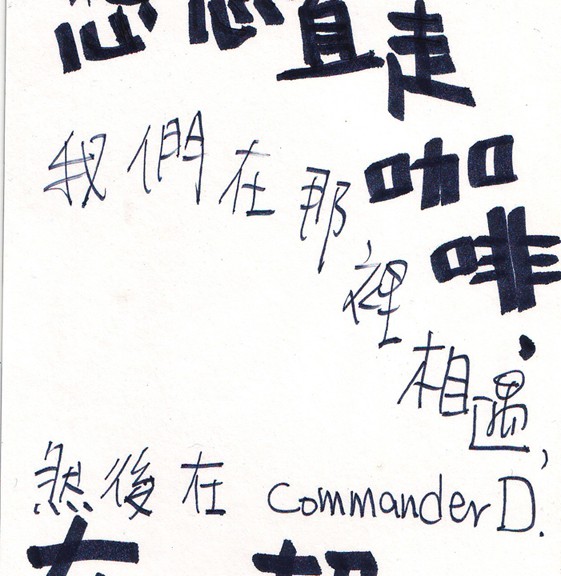 直走
咖啡,
我們在那裡相遇,
然後在 Commander D.